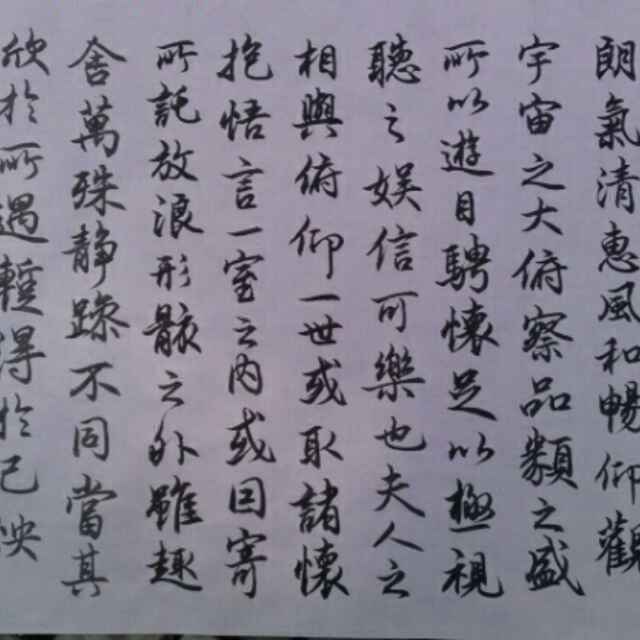 朗氣清惠風和暢仰觀
宇宙之大俯察品類之盛
所以遊目騁懷足以極視
聽之娛信可樂也夫人之
相與俯仰一世或取諸懷
抱悟言一室之內或因寄
所託放浪形骸之外雖趣
舍萬殊靜躁不同當其
欣於所遇暫得於己怏